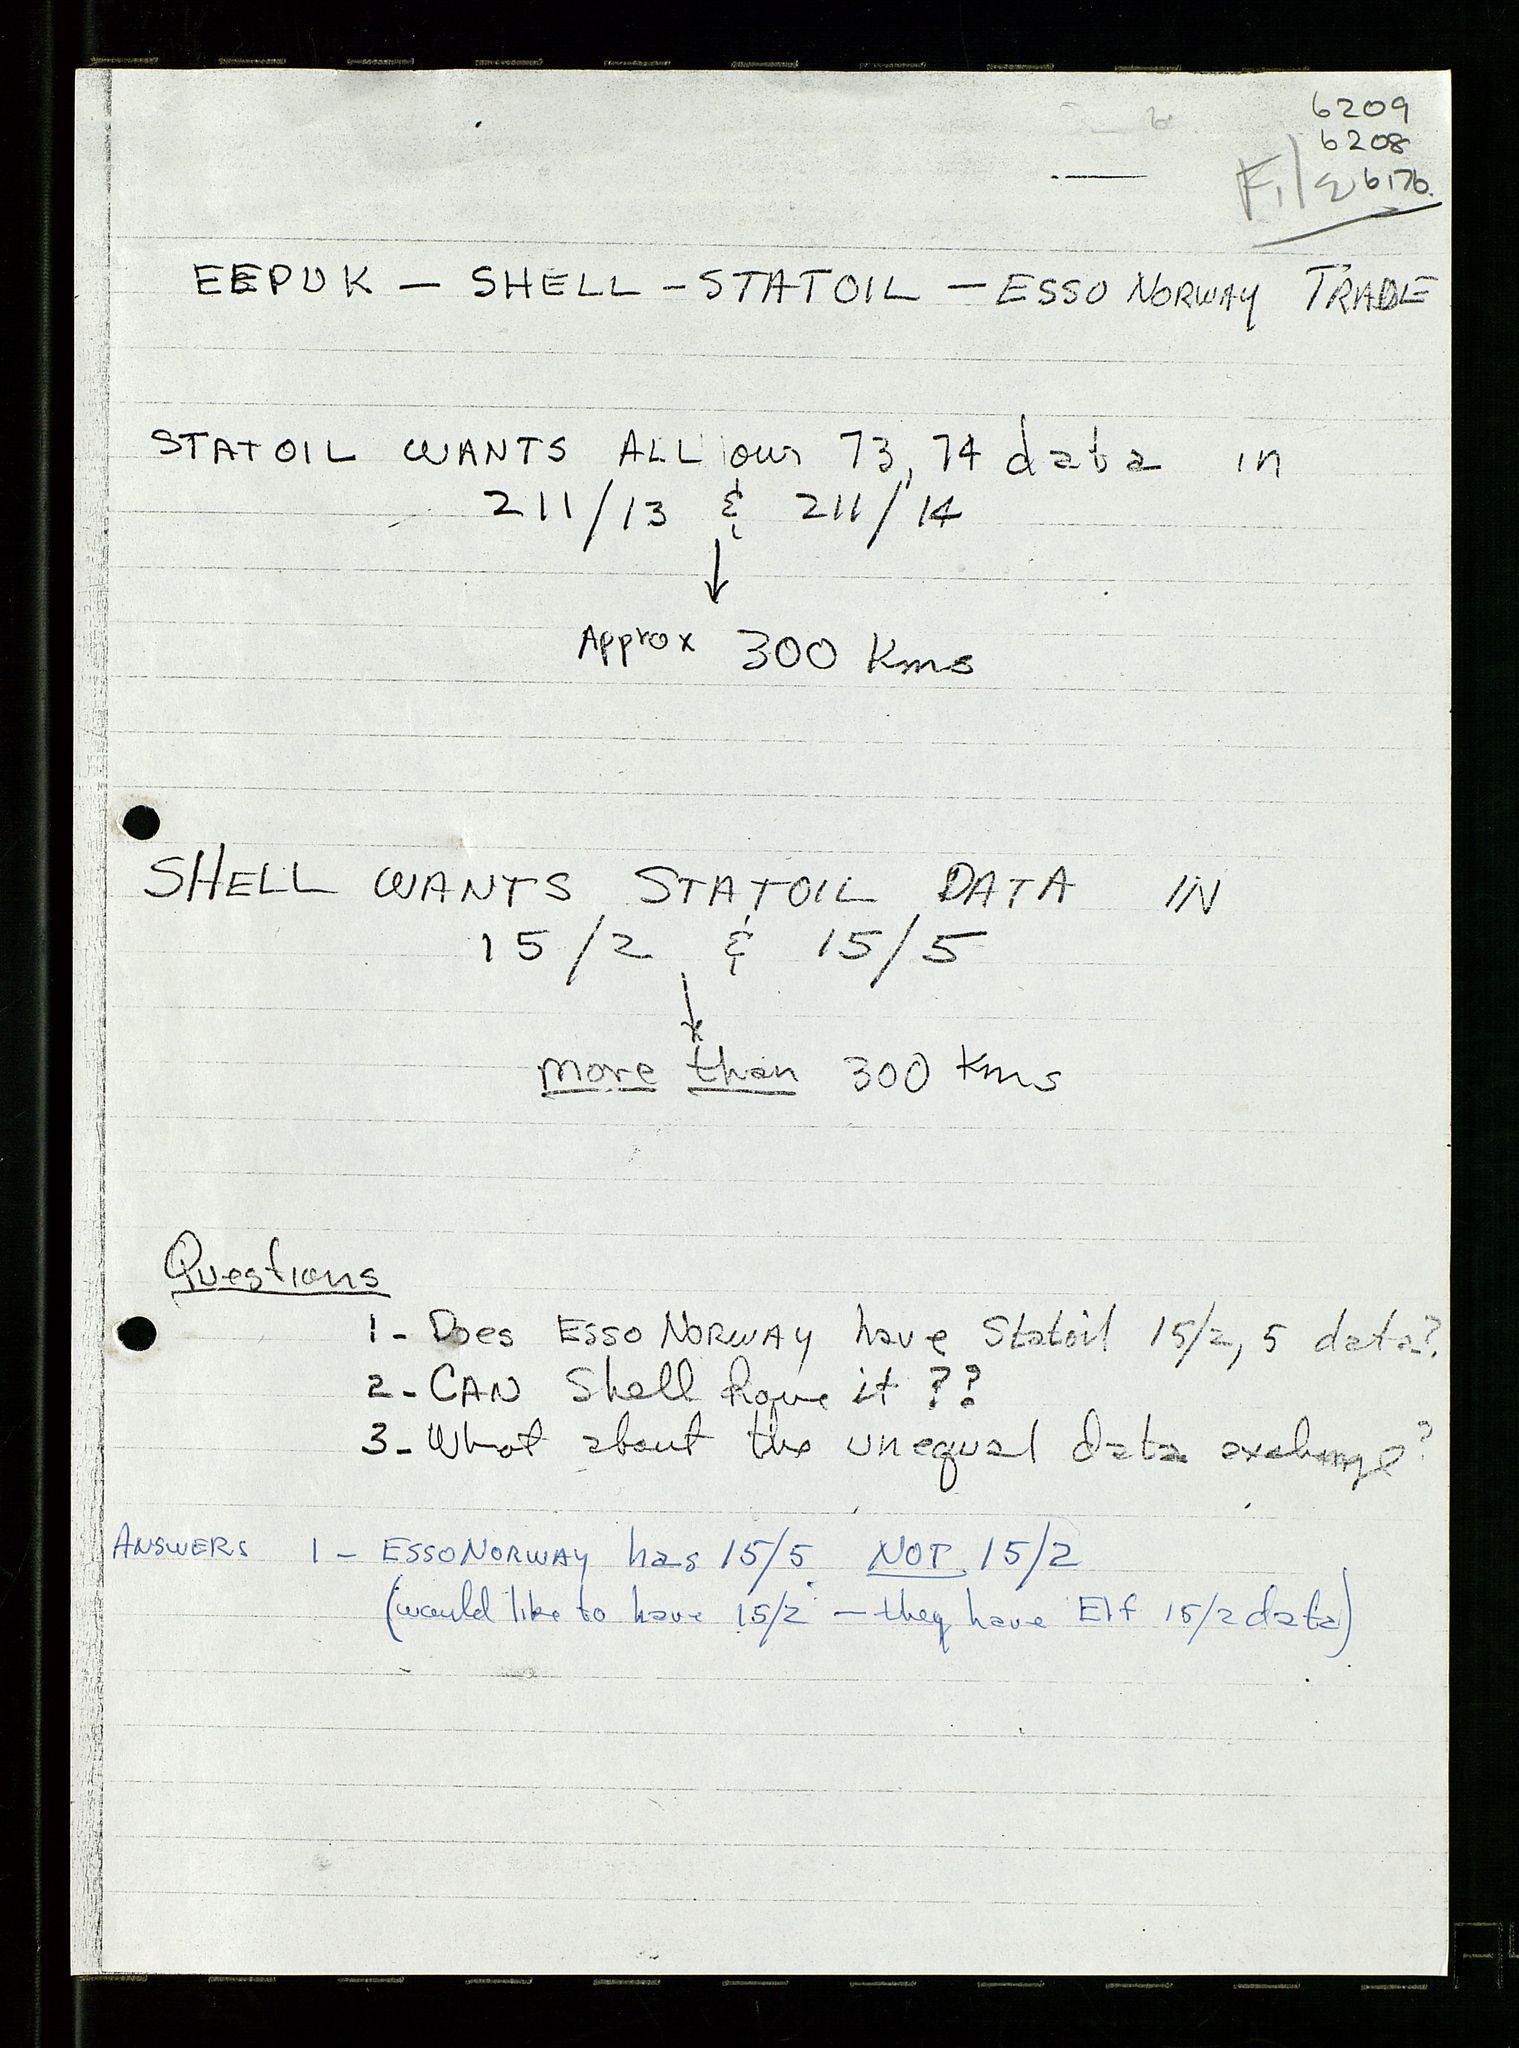 6209
6208
File 6176.
EEPUK — SHELL - STATOIL — ESSO NORWAY TRADE
STATOIL WANTS ALL our 73, 74 data in
211/13 & 211/14
↓
Approx 300 Kms
SHELL WANTS STATOIL DATA IN
15/2 & 15/5
↓
more than 300 Kms
Questions
1- Does ESSO NORWAY have Statoil 15/2, 5 data?
2- CAN Shell have it ??
3- What about the unequal data exchange?
ANSWERS 1 - ESSO NORWAY has 15/5 NOT 15/2
(would like to have 15/2 — they have Elf 15/2 data)